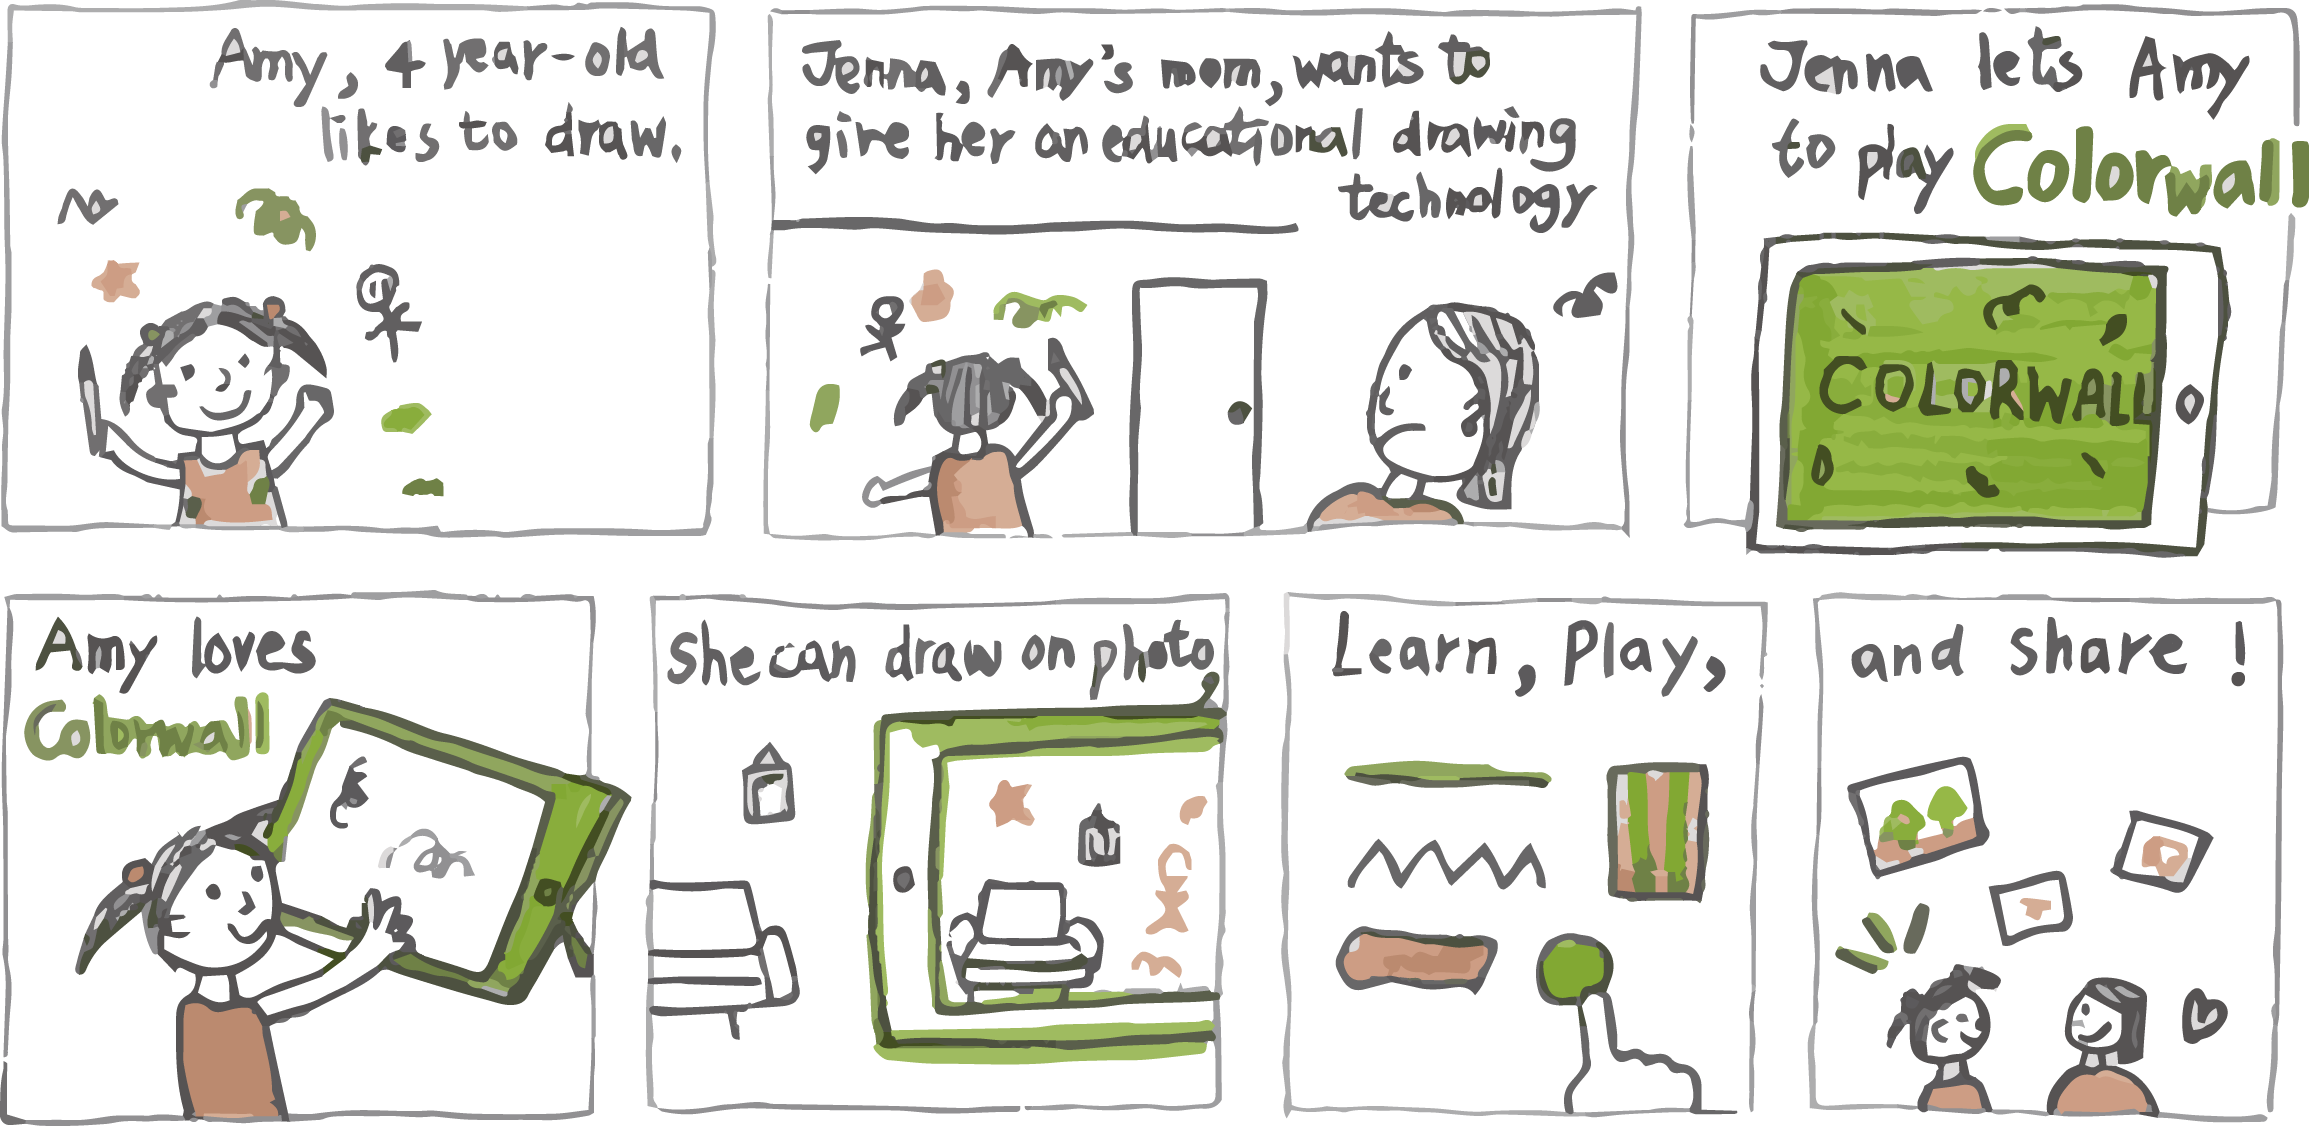 Amy, 4 year-old
likes to draw.
Jenna, Amy's mom, wants to
give her an educational drawing
technology
Jenna lets Amy
to play Colorwall
COLORWALL
Amy loves
Colorwall
She can draw on photo,
Learn, Play,
and share!